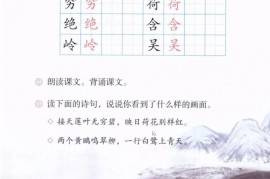 穷 穷 荷 荷
绝 绝 含 含
岭 岭 吴 吴
朗读课文。背诵课文。
读下面的诗句，说说你看到了什么样的画面。
◇ 接天莲叶无穷碧，映日荷花别样红。
◇ 两个黄鹂鸣翠柳，一行白鹭上青天。